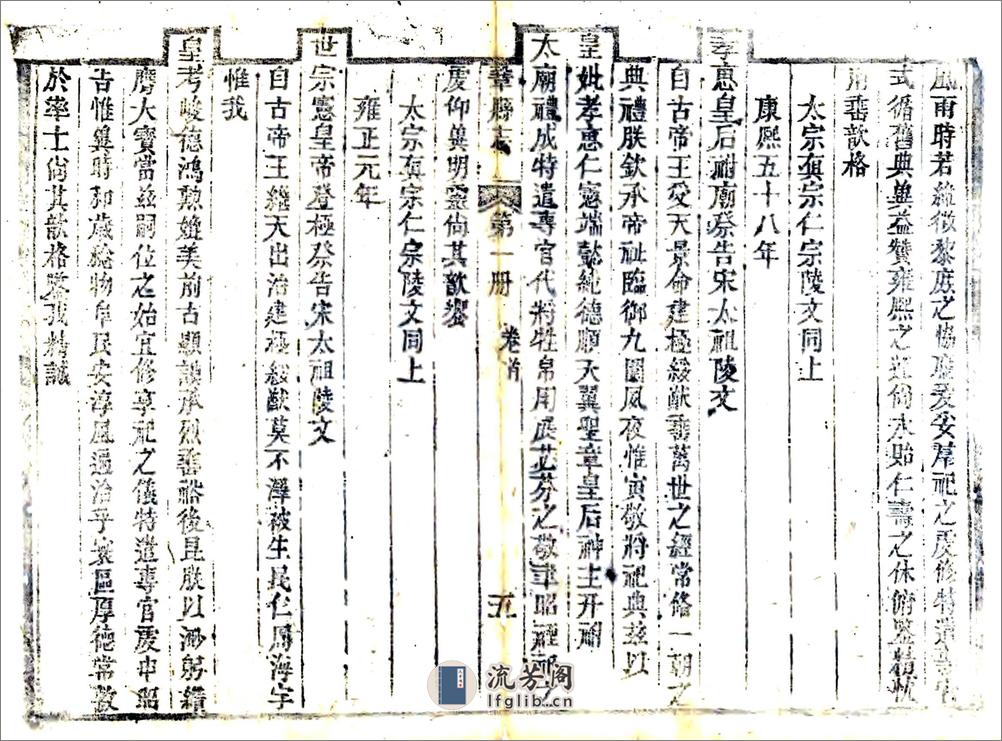 風雨時若綏徵黎庶之協應爰妥羣祀之虔修特遣專官
式循舊典冀益贊雍熙之運尚永貽仁壽之休俯鑒精忱
用垂歆格
太宗真宗仁宗陵文同上
康熙五十八年
孝惠皇后祔廟祭告宋太祖陵文
自古帝王受天景命建極綏猷垂萬世之經常備一朝之
典禮朕欽承帝祉臨御九圍夙夜惟寅敬將祀典茲以
皇妣孝惠仁憲端懿純德順天翼聖章皇后神主升祔
太廟禮成特遣專官代將牲帛用展苾芬之敬聿昭禋祀之
鞏縣志 第一冊 卷首 五
虔仰冀明靈尚其歆饗
太宗真宗仁宗陵文同上
雍正元年
世宗憲皇帝登極祭告宋太祖陵文
自古帝王繼天出治建極綏猷莫不澤被生民仁周海宇
惟我
皇考峻德鴻勲媲美前古顯謨承烈垂裕後昆朕以渺躬纘
膺大寶當茲嗣位之始宜修享祀之儀特遣專官虔申昭
告惟冀時和歲稔物阜民安淳風遍洽乎寰區厚德常敷
於率土尚其歆格鑒我精誠
流芳閣
lfglib.cn